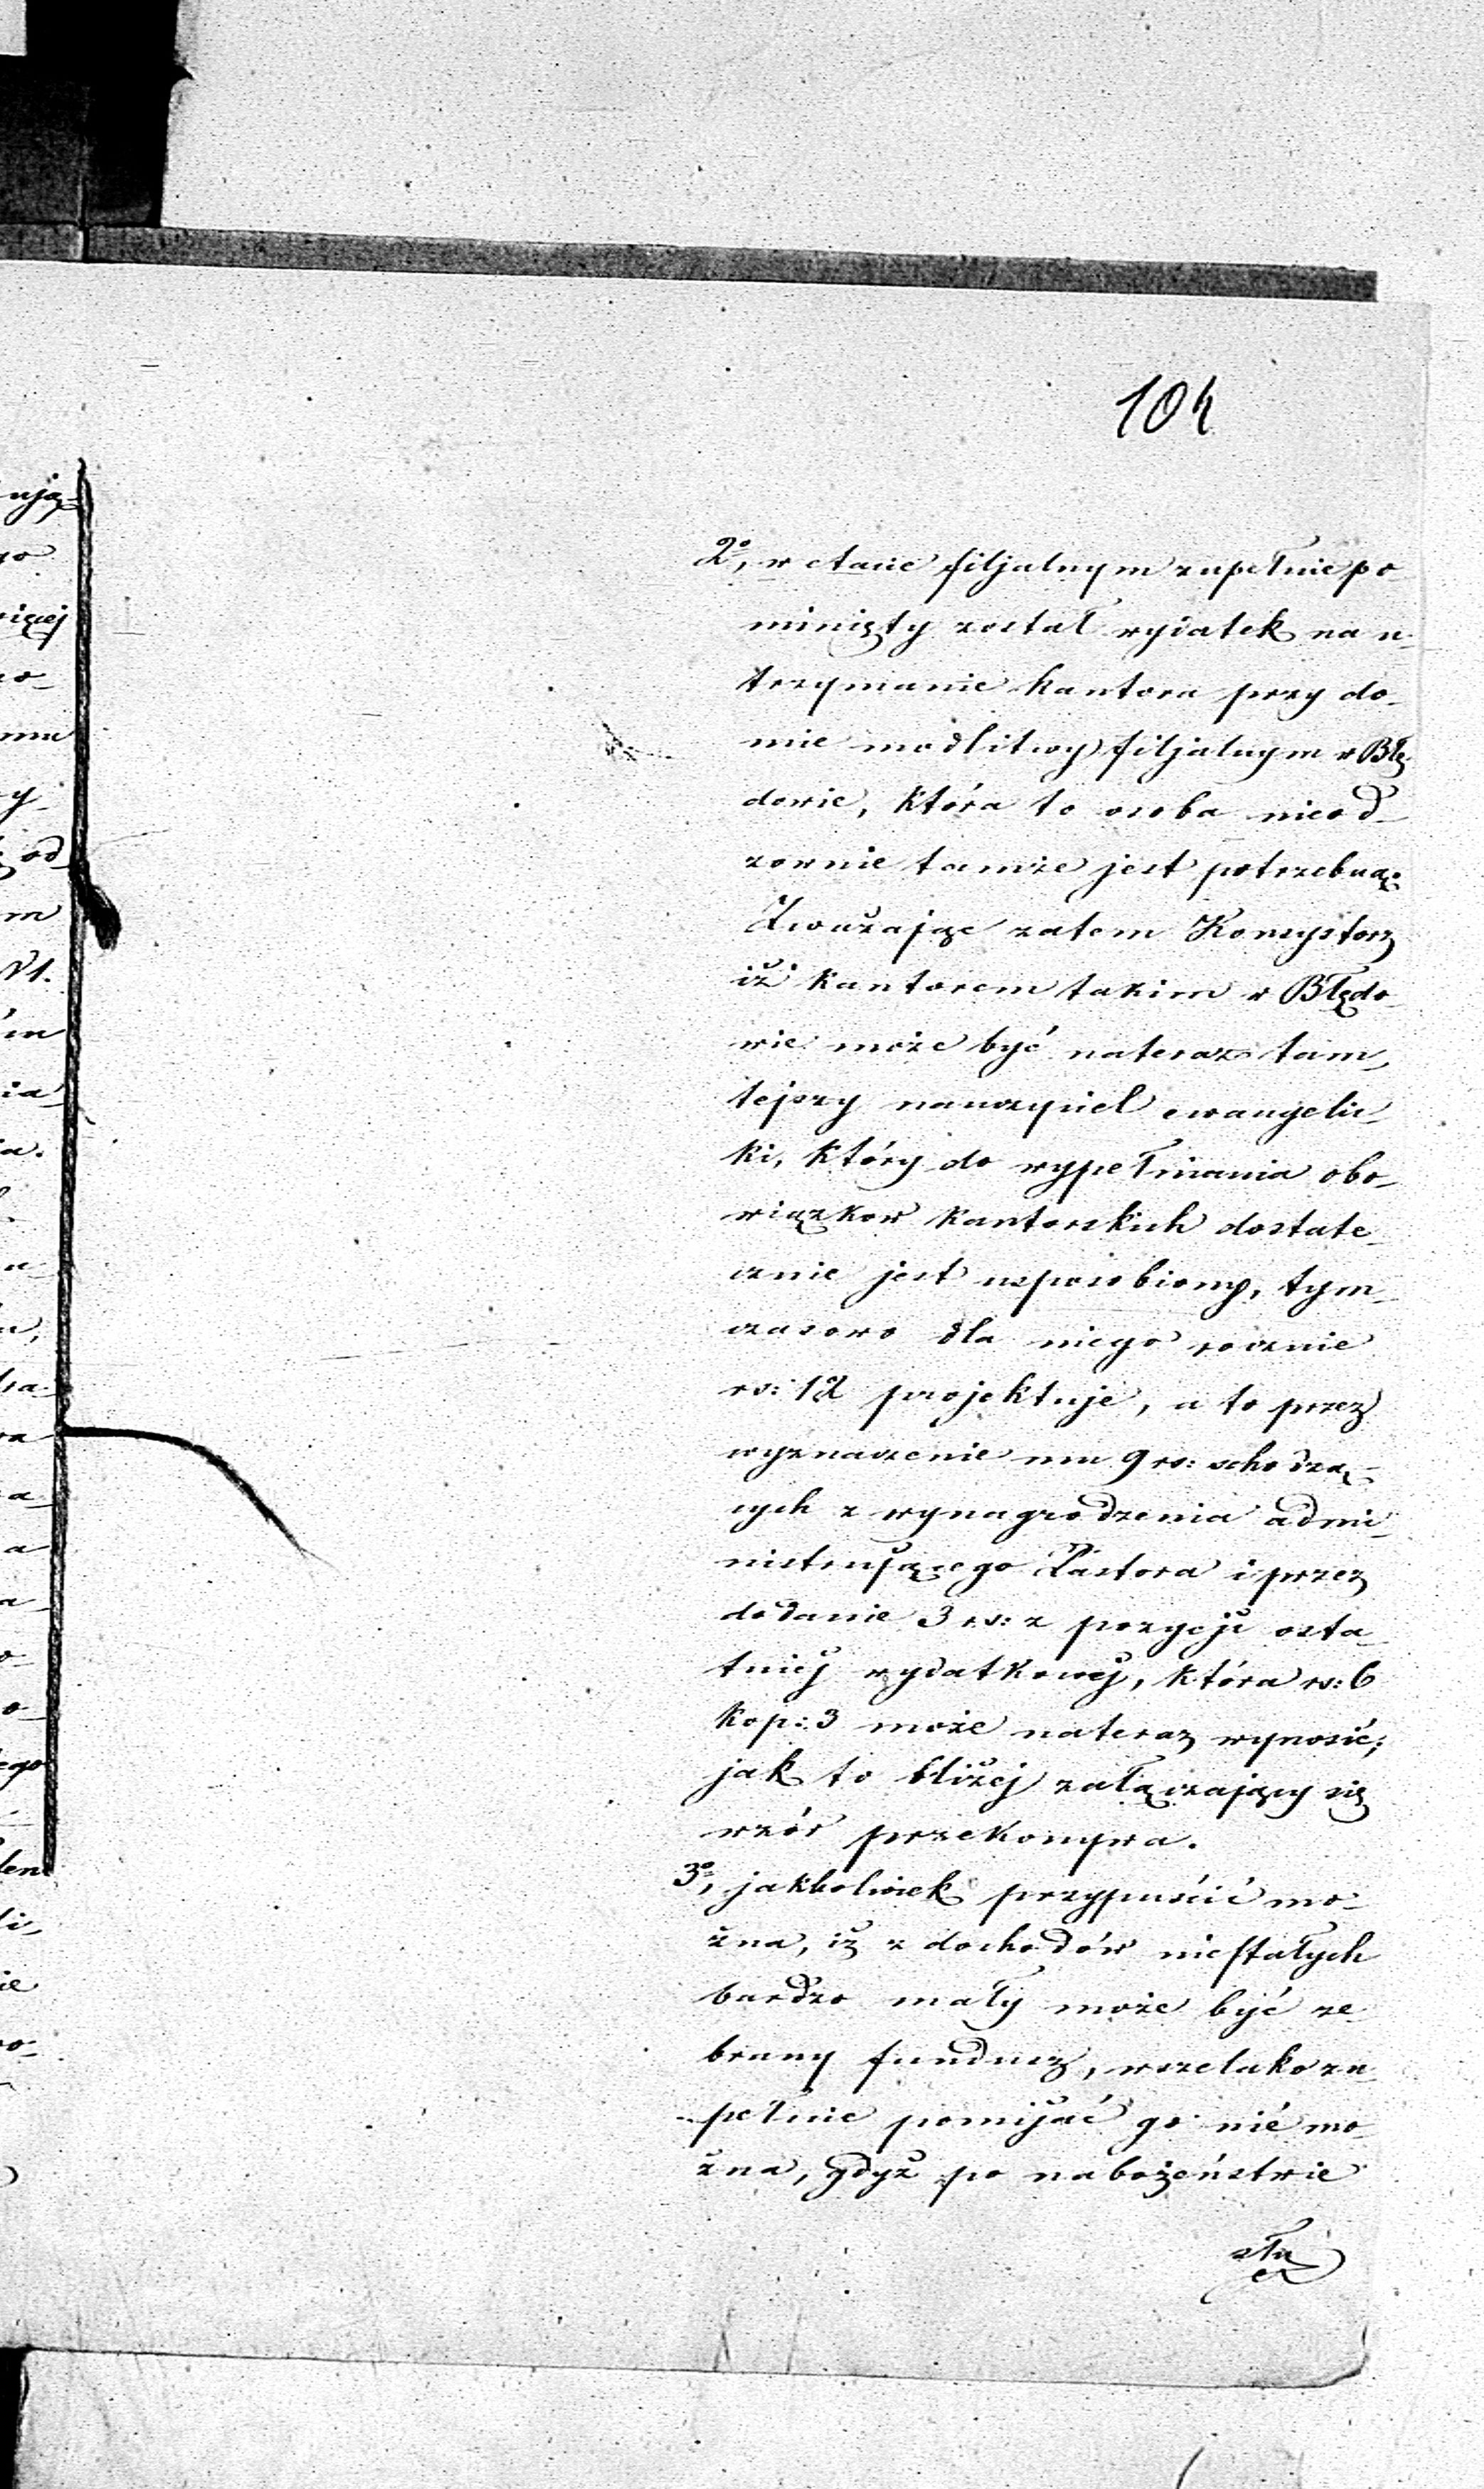 104
2º, w etacie filjalnym zupełnie po
minięty został wydatek na u-
trzymanie kantora przy do-
mie modlitwy filjalnym w Błę-
dowie, która to osoba nieod-
zownie tamże jest potrzebną.
Zważając zatem Konsystorz
iż kantorem takim w Błędo-
wie może być nateraz tam-
tejszy nauczyciel ewangelic-
ki, który do wypełniania obo-
wiązków kantorskich dostate-
cznie jest usposobiony, tym-
czasowo dla niego rocznie
rs: 12 projektuje, a to przez
wyznaczenie mu 9 rs: schodzą-
cych z wynagrodzenia admi-
nistrującego Pastora i przez
dodanie 3 rs: z pozycji osta-
tniéj wydatkowéj, która rs: 6
kop: 3 może nateraz wynosić;
jak to bliżej załączający się
wzór przekonywa.
3º, jakkolwiek przypuścić mo-
żna, iż z dochodów niestałych
bardzo mały może być ze-
brany fundusz, wszelako zu-
pełnie pomijać go nié mo-
żna, gdyż po nabożeństwie
ują-
go
więcej
mu
y-
od
m
ia
a.
ego
ie